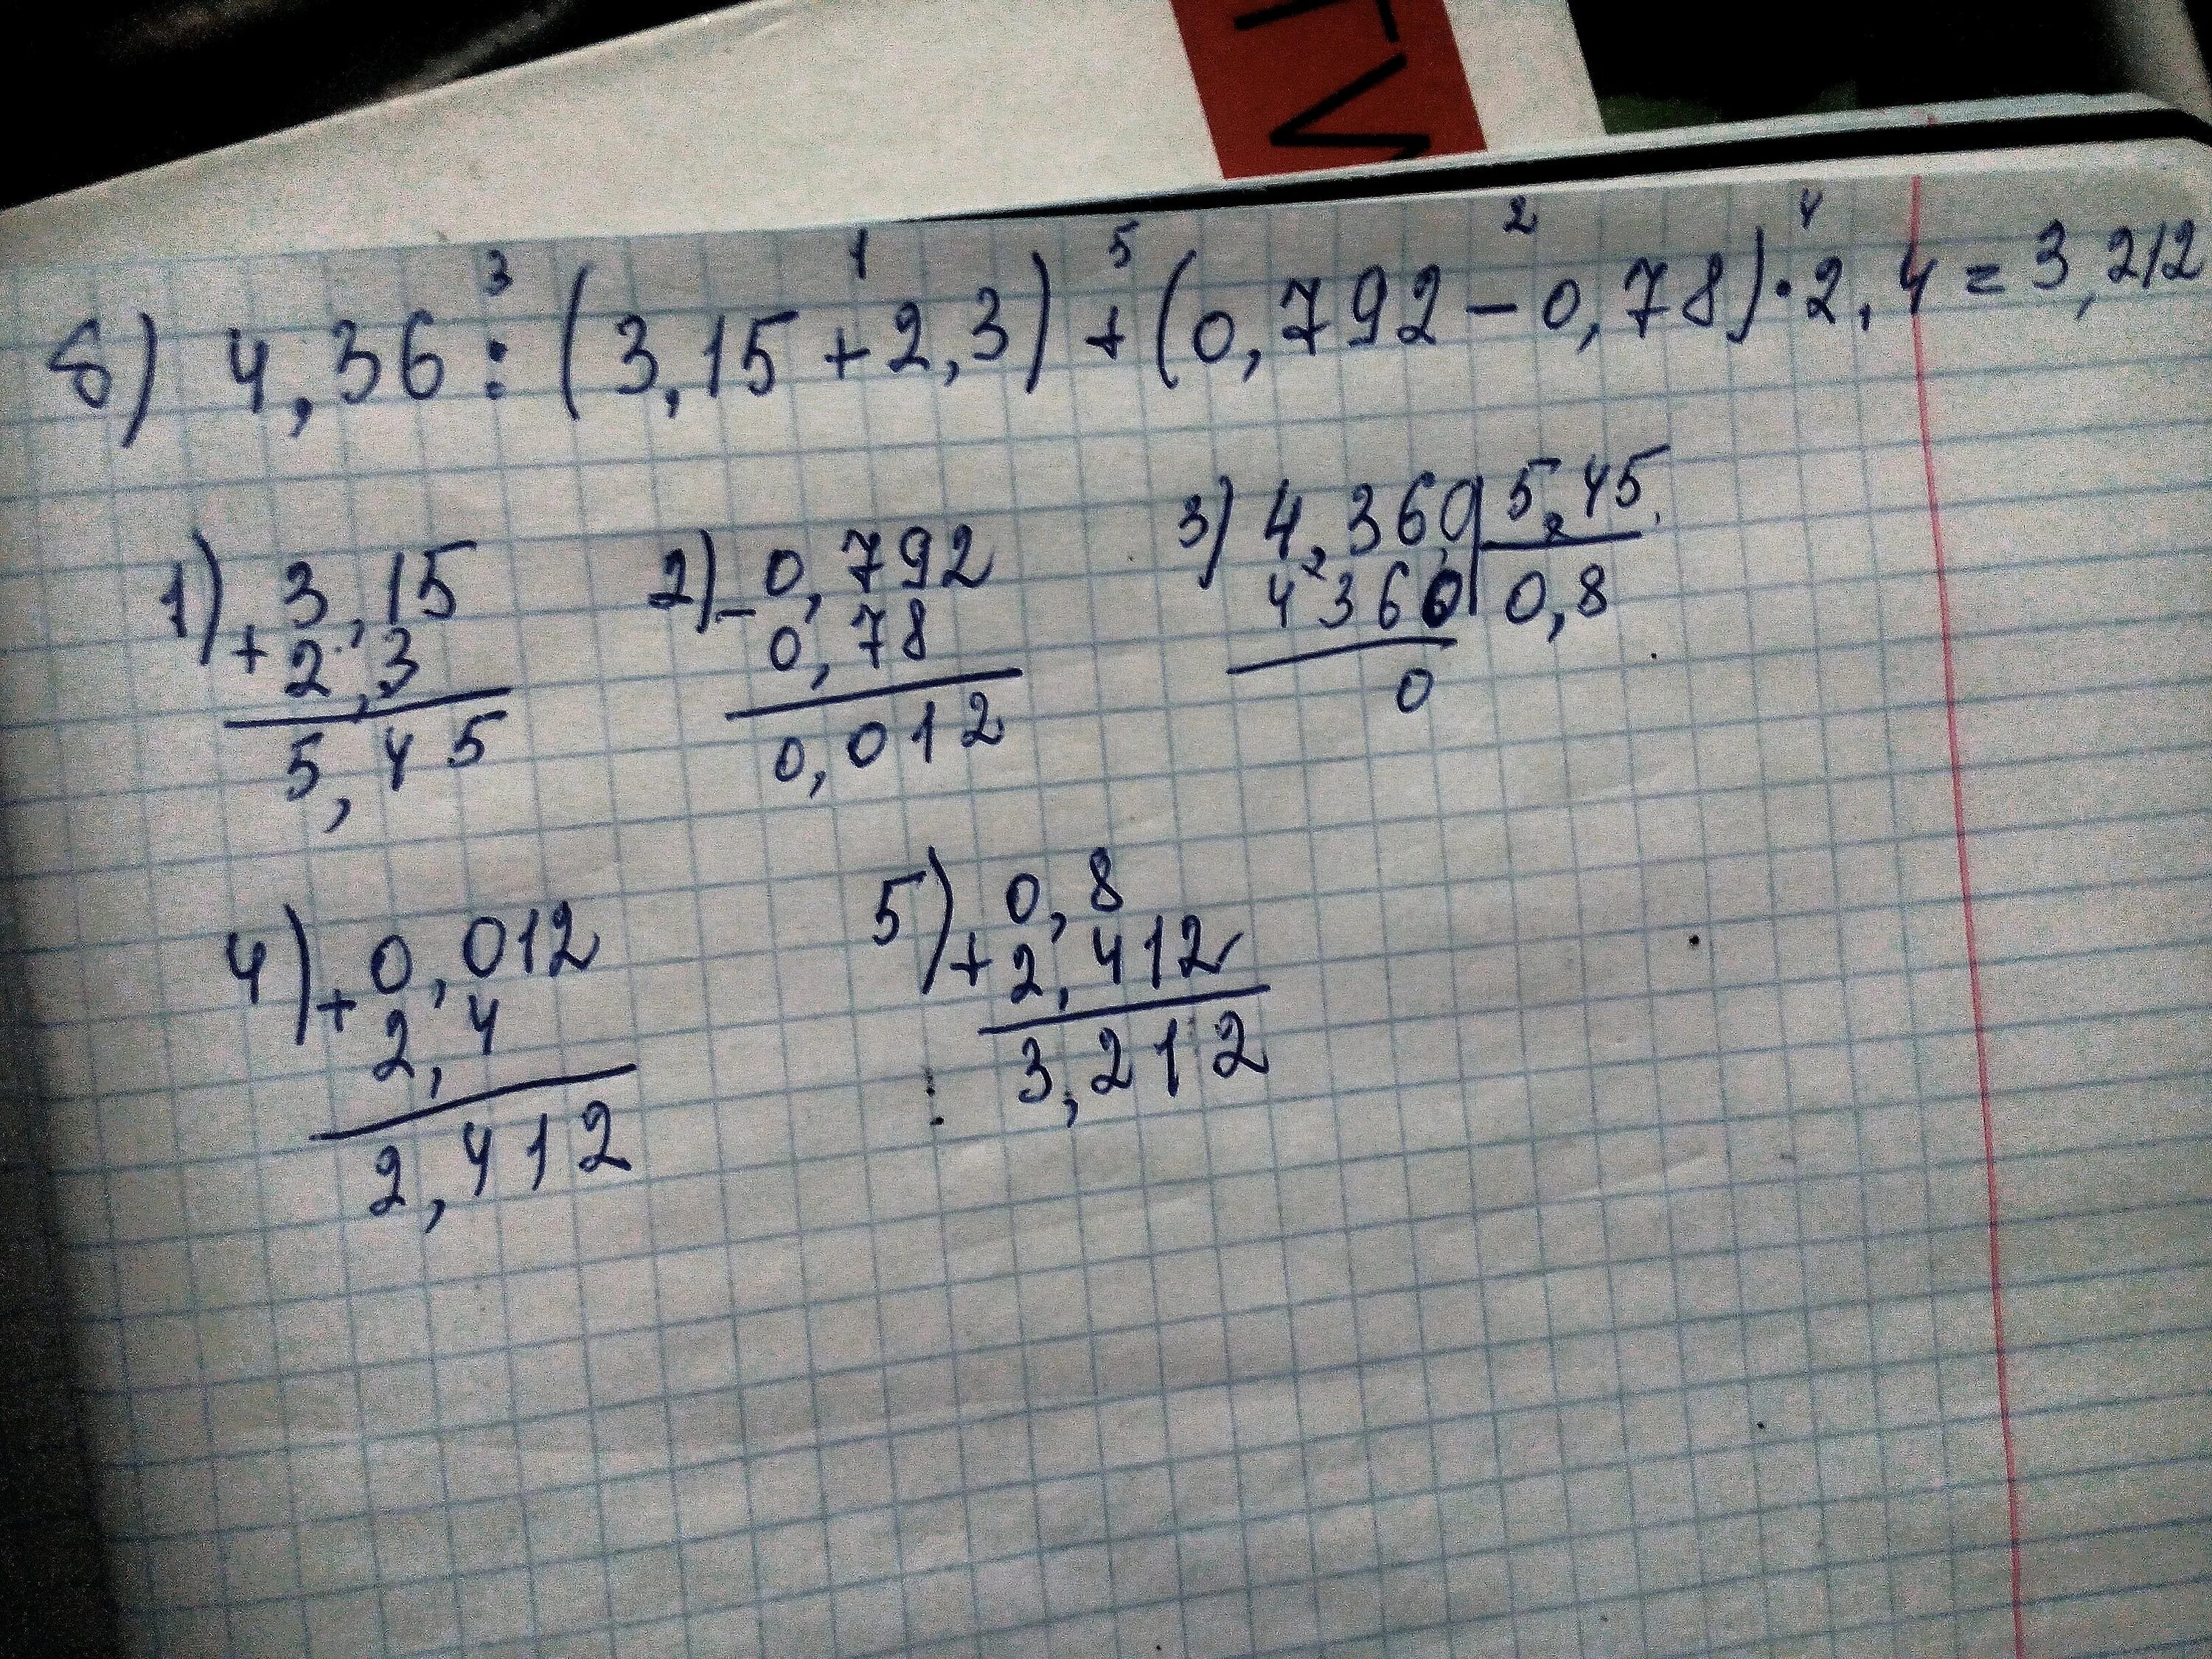 TV
3 1 5 2 4
б) 4,36 : (3,15 + 2,3) + (0,792 - 0,78) · 2,4 = 3,212
1) + 3,15
2,3
5,45
2) - 0,792
0,78
0,012
3) 4,36,0 | 5,45,
4360 | 0,8
0
4) + 0,012
2,4
2,412
5) + 0,8
2,412
3,212